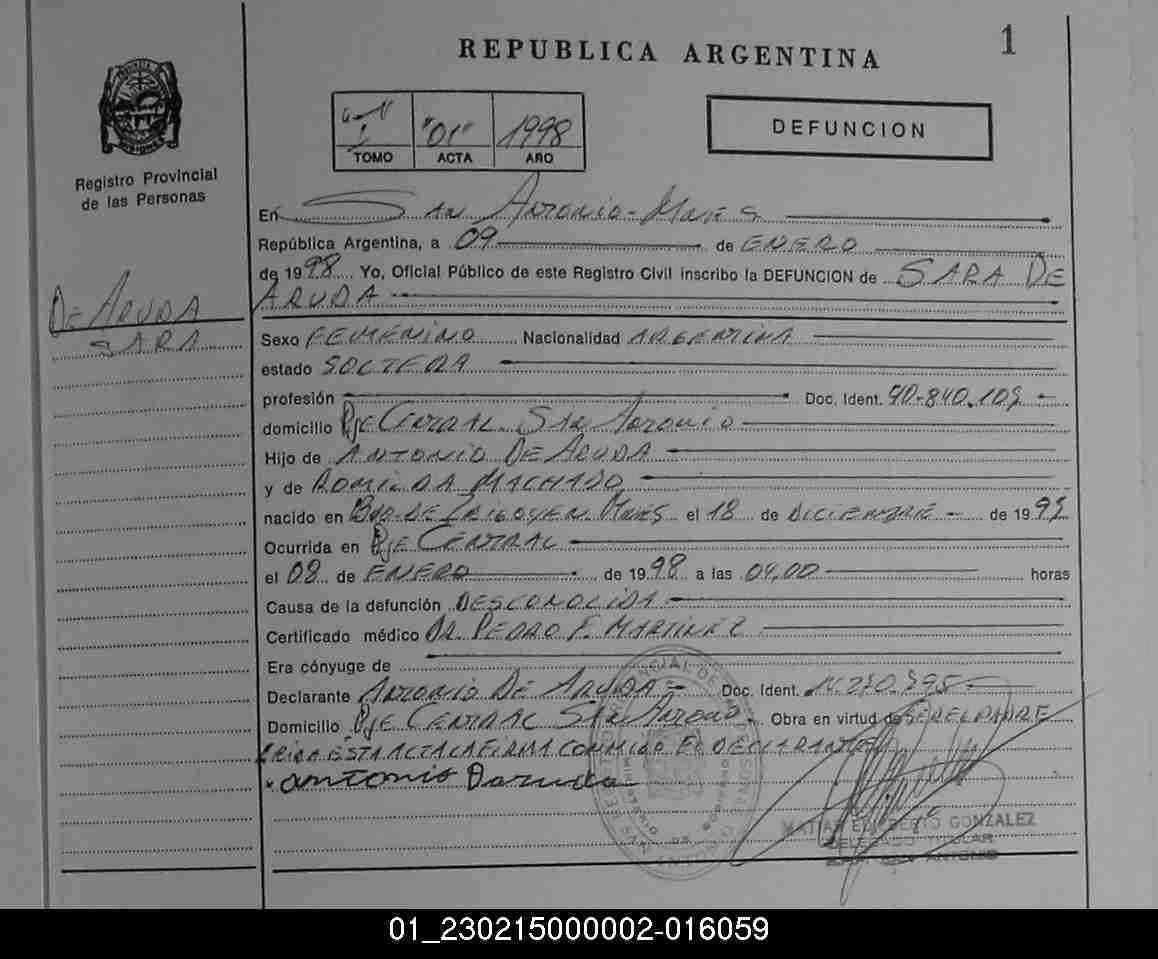 REPUBLICA ARGENTINA
1
Registro Provincial
de las Personas
1 "01" 1998
TOMO ACTA AÑO
DEFUNCION
En SAN ANTONIO - Mnes
República Argentina, a 09 de ENERO
de 1998 Yo, Oficial Público de este Registro Civil inscribo la DEFUNCION de SARA DE
ARUDA
DE ARUDA
SARA
Sexo FEMENINO Nacionalidad ARGENTINA
estado SOLTERA
profesión Doc. Ident. 40-840.109
domicilio Pje CENTRAL SAN ANTONIO
Hijo de ANTONIO DE ARUDA
y de ROMILDA MACHADO
nacido en Bdo. DE IRIGOYEN Mnes el 18 de DICIEMBRE de 199
Ocurrida en Pje CENTRAL
el 08 de ENERO de 1998 a las 04,00 horas
Causa de la defunción DESCONOCIDA
Certificado médico DR. PEDRO F. MARTINEZ
Era cónyuge de
Declarante ANTONIO DE ARUDA Doc. Ident.
Domicilio Pje CENTRAL SAN ANTONIO Obra en virtud de SER EL PADRE
ESTA ACTA LA FIRMA CONMIGO EL DECLARANTE
antonio Daruda
GONZALEZ
DELEGADO TITULAR
SAN ANTONIO
01_230215000002-016059